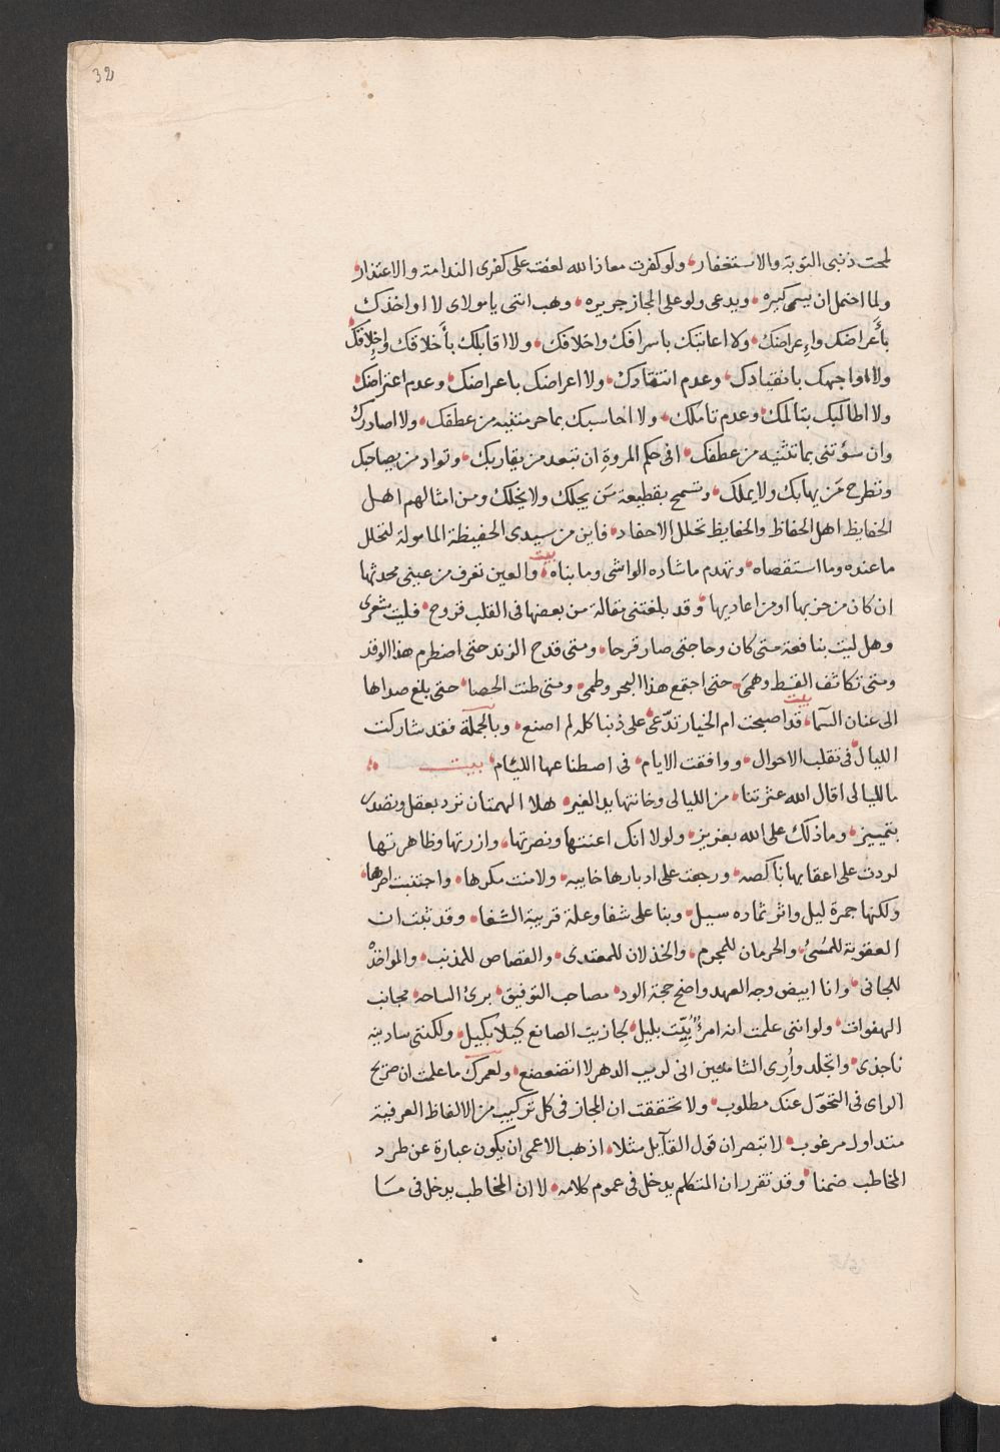 32
لمحت ذنبى التوبة والاستغفار، ولو كفرت معاذ الله لعفت على كفرى الندامة والاعتذار،
ولما احتمل ان يسمى كبيره، ويدعى ولو على المجاز جريره، وهب انتى يا مولاى لا اواخذك
بأَعراضك وإِعراضك، ولا اعاتبك باسرافك واخلافك، ولا اقابلك بأَخلاقك وإِخلاقك
ولا اواجهك بانقيادك، وعدم انتقادك، ولا اعارضك باعراضك، وعدم اعتراضك،
ولا اطالبك بتالمك، وعدم تاملك، ولا احاسبك بما حرمتنيه من عطفك، ولا اصادرك
وان سؤتنى بما تثنيه من عطفك، افى حكم المروة ان تبعد من يقاربك، وتواد من يصاحبك
وتطرح مَن يهابك ولا يملك، وتسمح بقطيعة مَن يجلك ولا يخلك ومن امثالهم اهل
الحفايظ اهل الحفاظ والحفايظ تحلل الاحقاد، فاين من سيدى الحفيظة المامولة لتحلل
ما عنده وما استقصاه، وتهدم ما شاده الواشى وما بناه، بيت والعين تعرف من عينى محدثها
ان كان من حزبها او من اعاديها، وقد بلغتنى مقالة من بعضها فى القلب قروح، فليت شعرى
وهل ليت بنافعة متى كان وحاجتى صار قرحا، ومتى قدح الزند حتى اضطرم هذا الوقد
ومتى تكاثف القسط وهمى، حتى اجتمع هذا البحر وطمى، ومتى طنت الحصا، حتى بلغ صداها
الى عنان السما، بيت قد اصبحت ام الخيار تدّعى، على ذنبا كله لم اصنع، وبالجملة فقد شاركت
الليال فى تقلب الاحوال، ووافقت الايام، فى اصطناعها الليام، بيت
ما لليالى اقال الله عثرتنا، من الليالى وخانتها يد الغير، هلا الهمتان ترد بعقل وتصدر
بتمييز، وما ذلك على الله بعزيز، ولولا انك اعنتها ونصرتها، وازرتها وظاهرتها
لردت على اعقابها ناكصه، ورجعت على ادبارها خايبه، ولامنت مكرها، واجتنبت
ولكنها جمرة ليل واثر ثماده سيل، وبنا على شفا وعلة قريبة الشفا، وقد ثبت ان
العقوبة للمسُئ، والحرمان للمجرم، والخذلان للمعتدى، والقصاص للمذنب، والمواخذة
للجانى، وانا ابيض وجه العهد واضح حجة الود، مصاحب التوفيق، برئ الساحه، مجانب
الهفوات، ولو انتى علمت انه امرٌ بُيّت بليل، لجازيت الصانع كيلا بكيل، ولكنتى
ناجذى، واتجلد وأُرى الشامتين انى لريب الدهر لا اتضعضع، ولعمرك ما علمت ان صريح
الراى فى التحوّل عنك مطلوب، ولا تحققت ان المجاز فى كل تركيب من الالفاظ العرفية
متداول مرغوب، لا تبصر ان قول القايل مثلا، اذهب الاعمى ان يكون عبارة عن طرد
المخاطب ضمنا، وقد تقرر ان المتكلم يدخل فى عموم كلامه، لا ان المخاطب يدخل فى مسا